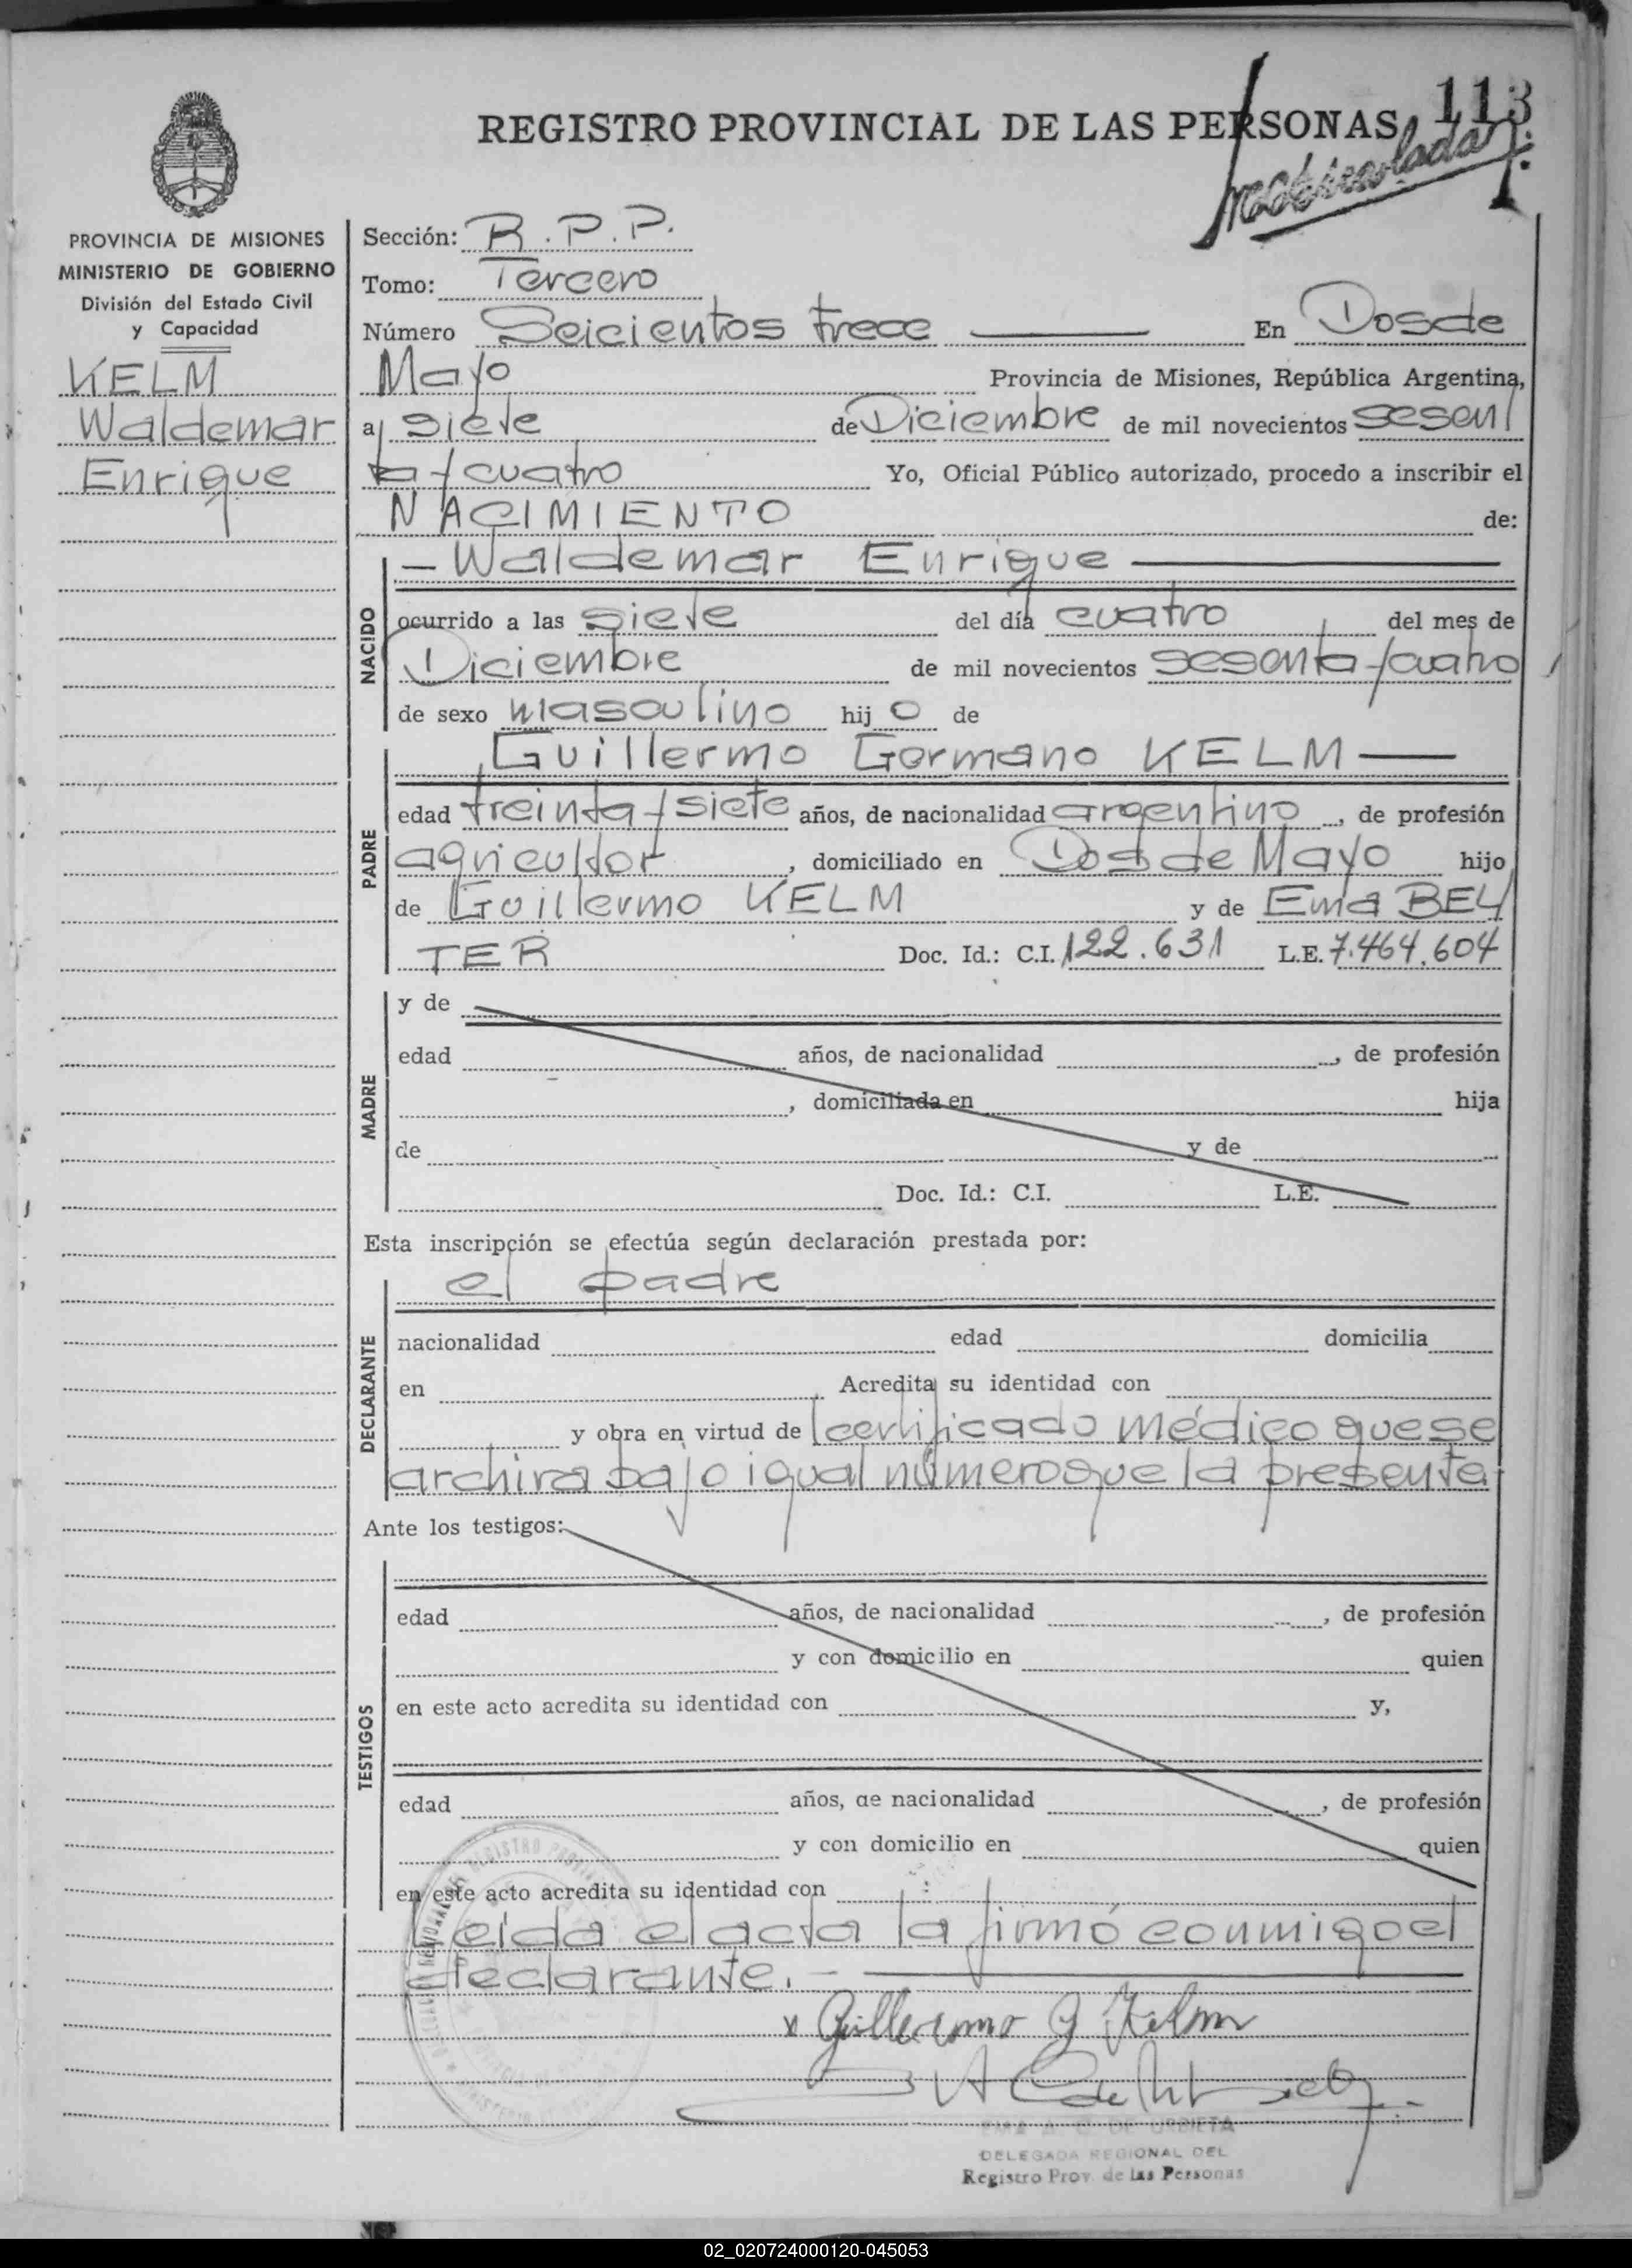 113
REGISTRO PROVINCIAL DE LAS PERSONAS
PROVINCIA DE MISIONES
MINISTERIO DE GOBIERNO
División del Estado Civil
y Capacidad
KELM
Waldemar
Enrique
Sección: R.P.P.
Tomo: Tercero
Número Seicientos trece En Dos de
Mayo Provincia de Misiones, República Argentina,
a siete de Diciembre de mil novecientos sesen
ta y cuatro Yo, Oficial Público autorizado, procedo a inscribir el
NACIMIENTO de:
NACIDO
- Waldemar Enrique
ocurrido a las siete del día cuatro del mes de
Diciembre de mil novecientos sesenta y cuatro
de sexo masculino hijo de
PADRE
Guillermo Germano KELM
edad treinta y siete años, de nacionalidad argentino, de profesión
agricultor, domiciliado en Dos de Mayo hijo
de Guillermo KELM y de Ema BEU
TER Doc. Id.: C.I. 122.631 L.E. 7.464.604
MADRE
y de
edad años, de nacionalidad , de profesión
, domiciliada en hija
de y de
Doc. Id.: C.I. L.E.
Esta inscripción se efectúa según declaración prestada por:
DECLARANTE
el padre
nacionalidad edad domicilia
en Acredita su identidad con
y obra en virtud de certificado médico que se
archiva bajo igual número que la presente
Ante los testigos:
TESTIGOS
edad años, de nacionalidad , de profesión
y con domicilio en quien
en este acto acredita su identidad con y,
edad años, de nacionalidad , de profesión
y con domicilio en quien
en este acto acredita su identidad con
Leída el acta la firmó conmigo el
declarante.-
x Guillermo G Kelm
EMA A. C. DE URBIETA
DELEGADA REGIONAL DEL
Registro Prov. de las Personas
02_020724000120-045053